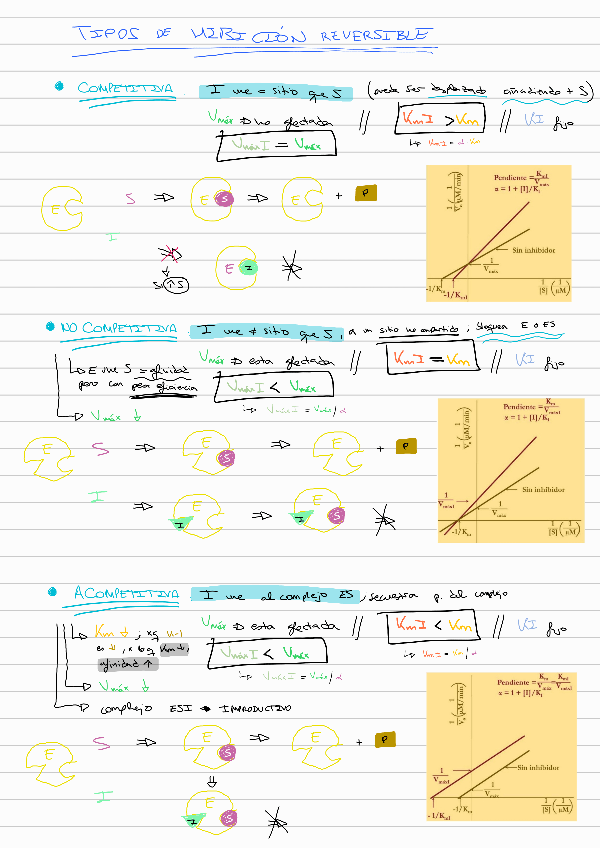 TIPOS DE INHIBICIÓN REVERSIBLE
COMPETITIVA. I une = sitio que S (puede ser desplazado añadiendo + S)
Vmáx → no afectada // KmI > Km // KI fijo
VmáxI = Vmáx
↳ KmI = α Km
E S ⇒ E S ⇒ E + P
I
E I
S ↑S
Pendiente = Km1/Vmáx
α = 1 + [I]/Ki
1/V₀ (1/μM/min)
Sin inhibidor
1/Vmáx
-1/Km
-1/Km1
1/[S] (1/μM)
NO COMPETITIVA. I une ≠ sitio que S, a un sitio no compartido; bloquea E o ES
↳ E une S = afinidad
pero con peor eficiencia
Vmáx → esta afectada // KmI = Km // KI fijo
VmáxI < Vmáx
↳ VmáxI = Vmáx/α
↳ Vmáx ↓
E S ⇒ E S ⇒ E + P
I ⇒ E I ⇒ E I S
Pendiente = Km/Vmáx1
α = 1 + [I]/Ki
1/V₀ (1/μM/min)
Sin inhibidor
1/Vmáx1
1/Vmáx
-1/Km
1/[S] (1/μM)
ACOMPETITIVA I une al complejo ES, secuestra p. del complejo
↳ Km ↓
afinidad ↑
Vmáx → esta afectada // KmI < Km // KI fijo
VmáxI < Vmáx
↳ KmI = Km/α
↳ VmáxI = Vmáx/α
↳ Vmáx ↓
↳ complejo ESI → IMPRODUCTIVO
E S ⇒ E S ⇒ E + P
I
E I S
Pendiente = Km/Vmáx = Km1/Vmáx1
α = 1 + [I]/Ki
1/V₀ (1/μM/min)
Sin inhibidor
1/Vmáx1
1/Vmáx
-1/Km1
-1/Km
1/[S] (1/μM)